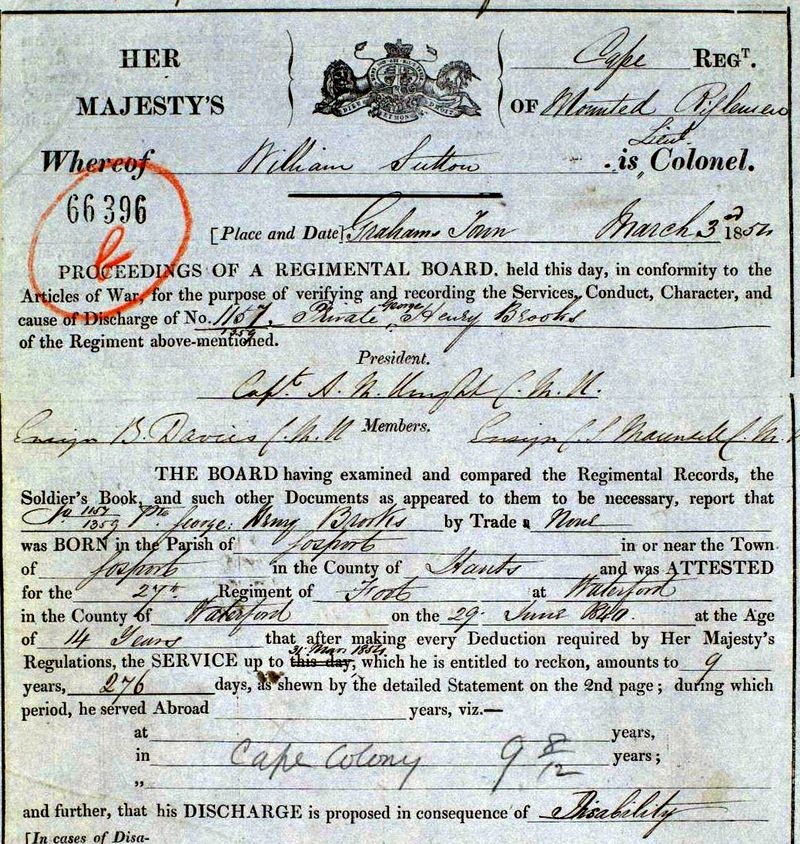 HER Cape REGT.
MAJESTY'S OF Mounted Riflemen
Whereof William Sutton is Lieut. Colonel.
66396
[Place and Date] Grahams Town March 3rd 1854
PROCEEDINGS OF A REGIMENTAL BOARD, held this day, in conformity to the
Articles of War, for the purpose of verifying and recording the Services, Conduct, Character, and
cause of Discharge of No. 1157, 1359 Private George Henry Brooks
of the Regiment above-mentioned.
President.
Capt. A. C.M.R.
Ensign B. Davies C.M.R Members. Ensign C.M.
THE BOARD having examined and compared the Regimental Records, the
Soldier's Book, and such other Documents as appeared to them to be necessary, report that
No 1157 1359 Pte George Henry Brooks by Trade a None
was BORN in the Parish of Gosport in or near the Town
of Gosport in the County of Hants and was ATTESTED
for the 27th Regiment of Foot at Waterford
in the County of Waterford on the 29 June 1840. at the Age
of 14 Years that after making every Deduction required by Her Majesty's
Regulations, the SERVICE up to this day, 31 Mar. 1854 which he is entitled to reckon, amounts to 9
years, 276 days, as shewn by the detailed Statement on the 2nd page; during which
period, he served Abroad years, viz.—
at years,
in Cape Colony 9 8/12 years;
„
and further, that his DISCHARGE is proposed in consequence of Disability
[In cases of Disa-